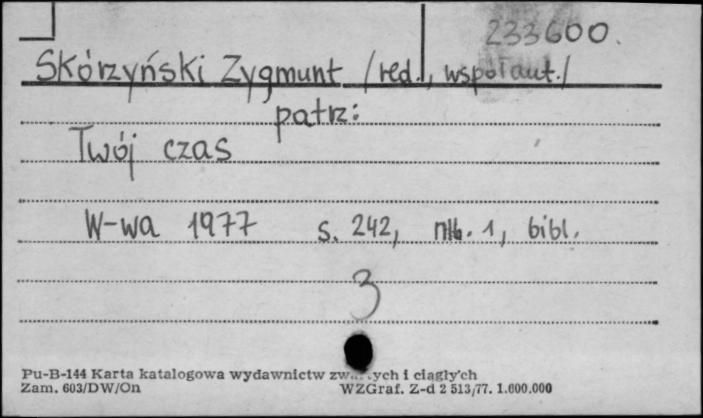 233600.
Skórzyński Zygmunt /red., współaut./
patrz:
Twój czas
W-wa 1977 s. 242, nlb. 1, bibl.
3
Pu-B-144 Karta katalogowa wydawnictw i ciągłych
Zam. 603/DW/On WZGraf. Z-d 2 513/77. 1.600.000